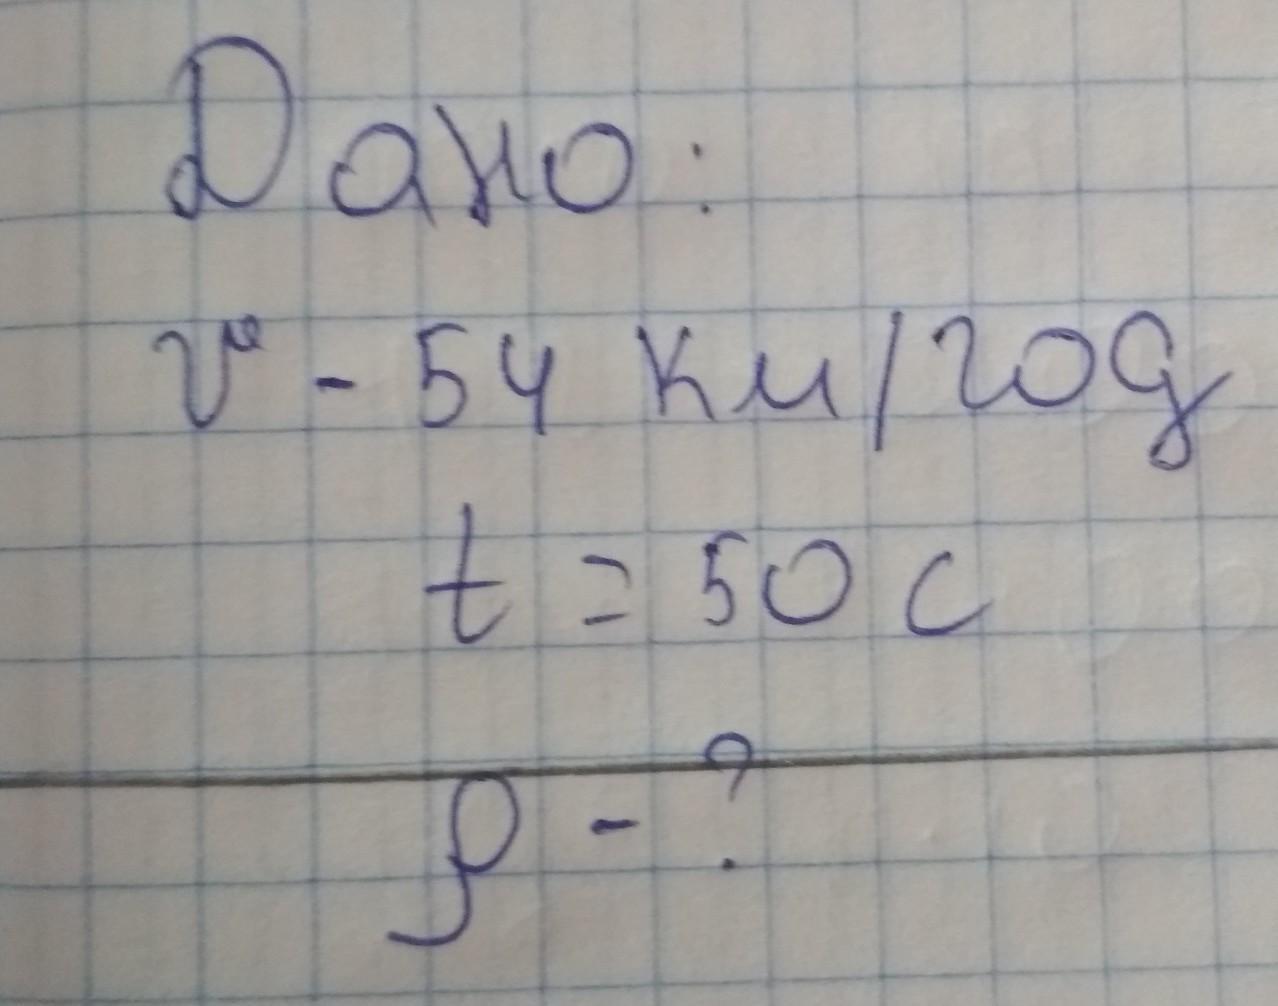 Дано:
v - 54 км/год
t = 50 с
ρ - ?